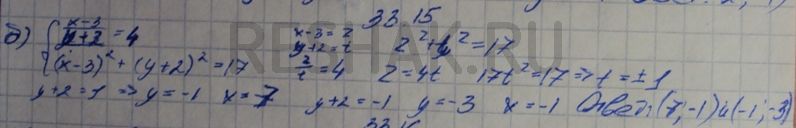 33.15
б) { (x-3)/(y+2) = 4   x-3=z   z²+t²=17
(x-3)²+(y+2)²=17   y+2=t   z/t=4   z=4t   17t²=17 => t=±1
y+2=1 => y=-1   x=7   y+2=-1   y=-3   x=-1   Ответ: (7;-1) и (-1;-3)
RESHAK.RU